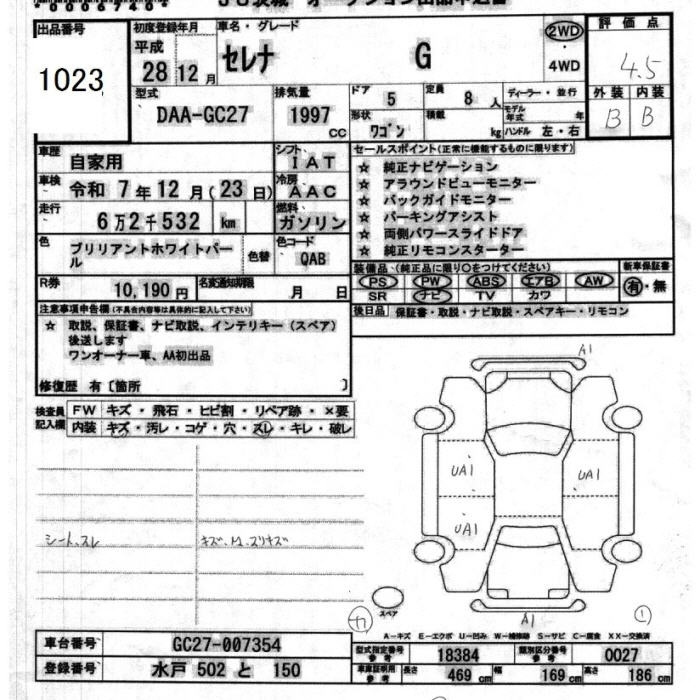 出品番号
1023
初度登録年月
平成
28 12 月
車名・グレード
セレナ G
2WD
・
4WD
評価点
4.5
外装 内装
B B
型式
DAA-GC27
排気量
1997 CC
ドア 5
定員 8 人
形状 ワゴン
積載 kg
ディーラー・並行
モデル年式 年
ハンドル 左・右
車歴 自家用
シフト IAT
車検 令和 7年12月(23日)
冷房 AAC
走行 6万2千532 km
燃料 ガソリン
色 ブリリアントホワイトパール
色替
色コード QAB
R券 10,190円
名変通知期限 月 日
セールスポイント(正常に機能するものに限ります)
☆ 純正ナビゲーション
☆ アラウンドビューモニター
☆ バックガイドモニター
☆ パーキングアシスト
☆ 両側パワースライドドア
☆ 純正リモコンスターター
装備品、(純正品に限り○をつけてください) 新車保証書
PS PW ABS エアB AW 有・無
SR ナビ TV カワ
後日品 保証書・取説・ナビ取説・スペアキー・リモコン
注意事項申告欄(不具合内容等は具体的に記入して下さい)
☆ 取説、保証書、ナビ取説、インテリキー(スペア)
後送します
ワンオーナー車、AA初出品
修復歴 有〔箇所 〕
検査員記入欄
FW キズ・飛石・ヒビ割・リペア跡・×要
内装 キズ・汚レ・コゲ・穴・スレ・キレ・破レ
シート、スレ
A1
UA1
UA1
UA1
A1
スペア
①
A−キズ E−エクボ U−凹み W−補修跡 S−サビ C−腐食 XX−交換済
車台番号 GC27-007354
登録番号 水戸 502 と 150
型式指定番号 参考 18384
類別区分番号 参考 0027
車庫証明用 参考 長さ 469 cm 幅 169 cm 高さ 186 cm